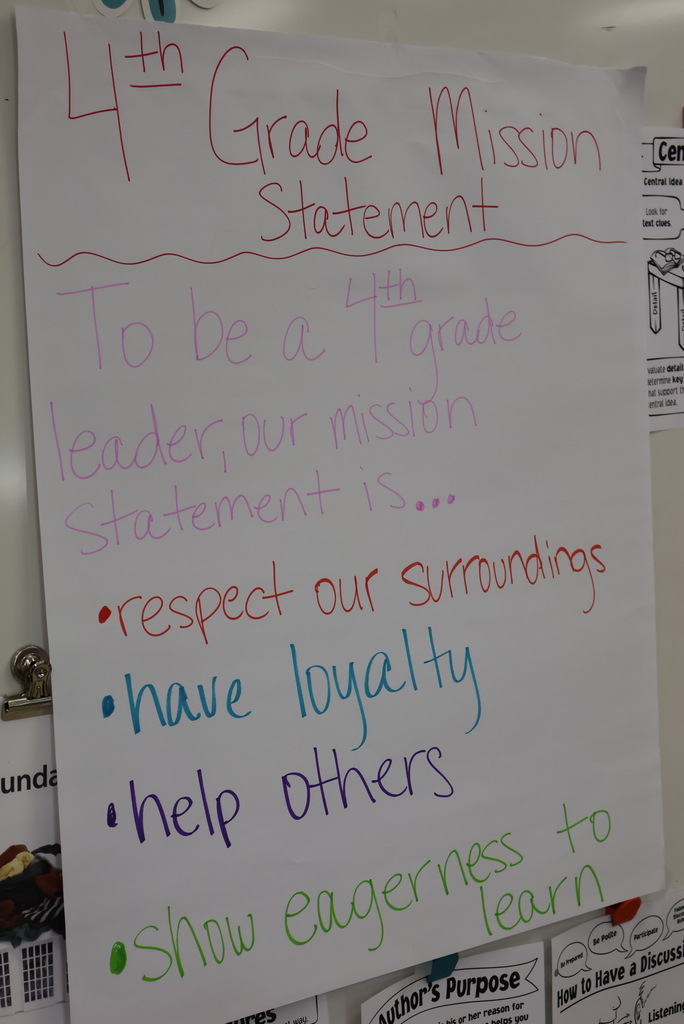 4th Grade Mission
Statement
To be a 4th grade
leader, our mission
statement is...
•respect our surroundings
•have loyalty
•help others
•show eagerness to
learn
Cen
Central Idea
Look for
text clues.
Detail
valuate detail
determine key
hat support th
entral idea.
unda
Author's Purpose
his or her reason for
helps you
ures
way.
Be Prepared
Be Polite
Participate
How to Have a Discussi
Listening